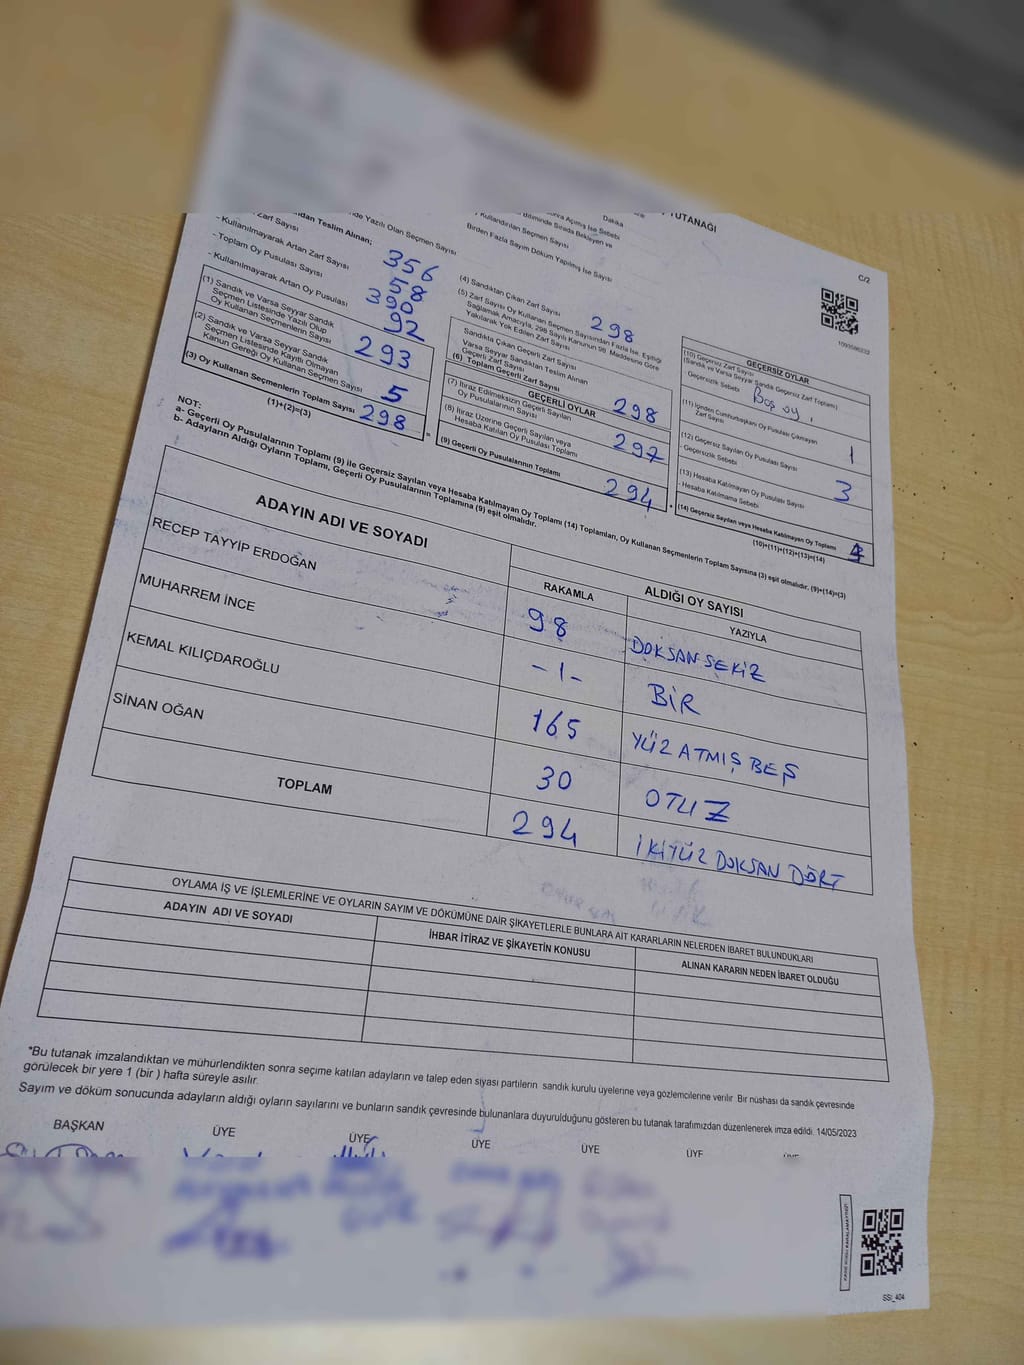 TUTANAĞI
C/2
Dakika
Birden Fazla Sayım Döküm Yapılmış İse Sayısı
nde Yazılı Olan Seçmen Sayısı
ndan Teslim Alınan;
Zarf Sayısı 356
- Kullanılmayarak Artan Zarf Sayısı 58
- Toplam Oy Pusulası Sayısı 390
- Kullanılmayarak Artan Oy Pusulası 92
(1) Sandık ve Varsa Seyyar Sandık
Seçmen Listesinde Yazılı Olup
Oy Kullanan Seçmenlerin Sayısı 293
(2) Sandık ve Varsa Seyyar Sandık
Seçmen Listesinde Kayıtlı Olmayan
Kanun Gereği Oy Kullanan Seçmen Sayısı 5
(3) Oy Kullanan Seçmenlerin Toplam Sayısı 298
(1)+(2)=(3)
(4) Sandıktan Çıkan Zarf Sayısı 298
(5) Zarf Sayısı Oy Kullanan Seçmen Sayısından Fazla İse, Eşitliği
Sağlamak Amacıyla, 298 Sayılı Kanunun 98. Maddesine Göre
Yakılarak Yok Edilen Zarf Sayısı
Sandıkta Çıkan Geçerli Zarf Sayısı
Varsa Seyyar Sandıktan Teslim Alınan
Geçerli Zarf Sayısı
(6) Toplam Geçerli Zarf Sayısı 298
GEÇERLİ OYLAR
(7) İtiraz Edilmeksizin Geçerli Sayılan
Oy Pusulalarının Sayısı 297
(8) İtiraz Üzerine Geçerli Sayılan veya
Hesaba Katılan Oy Pusulası Toplamı
(9) Geçerli Oy Pusulalarının Toplamı 294
1093586233
GEÇERSİZ OYLAR
(10) Geçersiz Zarf Sayısı
(Sandık ve Varsa Seyyar Sandık Geçersiz Zarf Toplamı)
Geçersizlik Sebebi Boş oy
(11) İçinden Cumhurbaşkanı Oy Pusulası Çıkmayan
Zarf Sayısı 1
(12) Geçersiz Sayılan Oy Pusulası Sayısı
- Geçersizlik Sebebi 3
(13) Hesaba Katılmayan Oy Pusulası Sayısı
- Hesaba Katılmama Sebebi
(14) Geçersiz Sayılan veya Hesaba Katılmayan Oy Toplamı 4
(10)+(11)+(12)+(13)=(14)
NOT:
a- Geçerli Oy Pusulalarının Toplamı (9) ile Geçersiz Sayılan veya Hesaba Katılmayan Oy Toplamı (14) Toplamları, Oy Kullanan Seçmenlerin Toplam Sayısına (3) eşit olmalıdır. (9)+(14)=(3)
b- Adayların Aldığı Oyların Toplamı, Geçerli Oy Pusulalarının Toplamına (9) eşit olmalıdır.
ADAYIN ADI VE SOYADI
ALDIĞI OY SAYISI
RAKAMLA YAZIYLA
RECEP TAYYİP ERDOĞAN 98 DOKSAN SEKİZ
MUHARREM İNCE -1- BİR
KEMAL KILIÇDAROĞLU 165 YÜZ ATMIŞ BEŞ
SİNAN OĞAN 30 OTUZ
TOPLAM 294 İKİYÜZ DOKSAN DÖRT
OYLAMA İŞ VE İŞLEMLERİNE VE OYLARIN SAYIM VE DÖKÜMÜNE DAİR ŞİKAYETLERLE BUNLARA AİT KARARLARIN NELERDEN İBARET BULUNDUKLARI
ADAYIN ADI VE SOYADI
İHBAR İTİRAZ VE ŞİKAYETİN KONUSU
ALINAN KARARIN NEDEN İBARET OLDUĞU
*Bu tutanak imzalandıktan ve mühürlendikten sonra seçime katılan adayların ve talep eden siyasi partilerin sandık kurulu üyelerine veya gözlemcilerine verilir. Bir nüshası da sandık çevresinde
görülecek bir yere 1 (bir ) hafta süreyle asılır.
Sayım ve döküm sonucunda adayların aldığı oyların sayılarını ve bunların sandık çevresinde bulunanlara duyurulduğunu gösteren bu tutanak tarafımızdan düzenlenerek imza edildi. 14/05/2023
BAŞKAN ÜYE ÜYE ÜYE ÜYE ÜYE
SSI_404